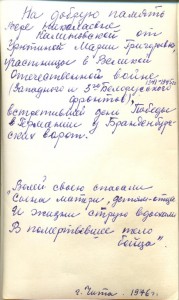 На добрую память
Вере Михайловне
Калиновской от
Марии Григорьевны,
участницы в Великой
Отечественной войне
(Западного и 3го Белорусского 1941-1945гг
фронтов),
встретившей день Победы
в Германии у Бранденбург-
ских ворот.
своею спасали
Сынов матери, детям-отца
И жизни струю вдохнали
В помертвевшее тело
бойца"
г. Чита 1976г.